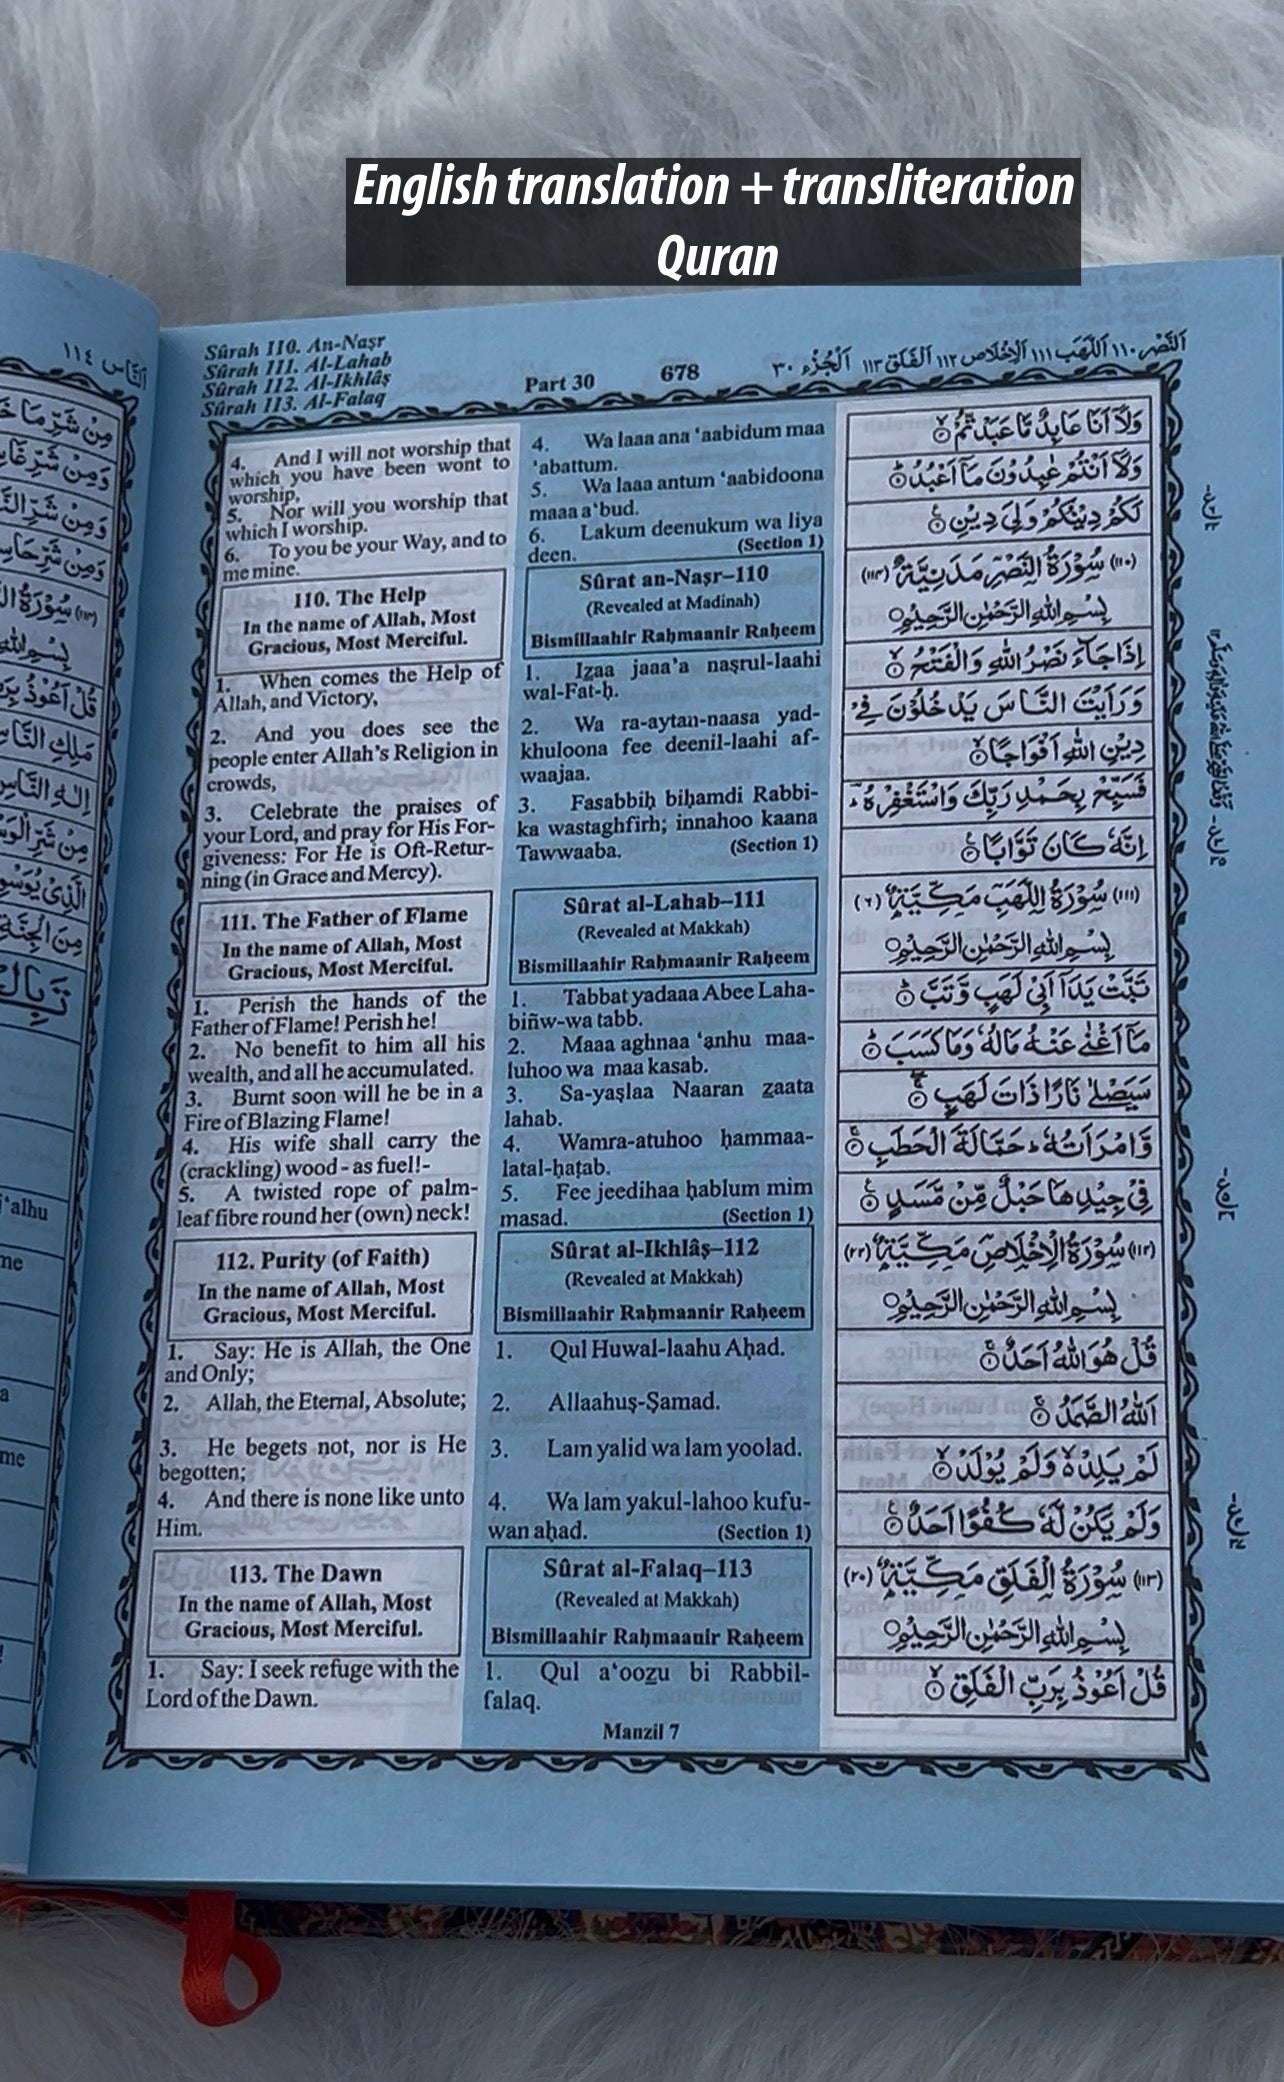 English translation + transliteration
Quran
Sûrah 110. An-Naṣr
Sûrah 111. Al-Lahab
Sûrah 112. Al-Ikhlâṣ
Sûrah 113. Al-Falaq
Part 30
678
اَلنَّصْر ١١٠ اَللَّهَب ١١١ اَلْاِخْلَاص ١١٢ اَلْفَلَق ١١٣ اَلْجُزْء ٣٠
4. And I will not worship that
which you have been wont to
worship,
5. Nor will you worship that
which I worship.
6. To you be your Way, and to
me mine.
110. The Help
In the name of Allah, Most
Gracious, Most Merciful.
1. When comes the Help of
Allah, and Victory,
2. And you does see the
people enter Allah's Religion in
crowds,
3. Celebrate the praises of
your Lord, and pray for His For-
giveness: For He is Oft-Retur-
ning (in Grace and Mercy).
111. The Father of Flame
In the name of Allah, Most
Gracious, Most Merciful.
1. Perish the hands of the
Father of Flame! Perish he!
2. No benefit to him all his
wealth, and all he accumulated.
3. Burnt soon will he be in a
Fire of Blazing Flame!
4. His wife shall carry the
(crackling) wood - as fuel!-
5. A twisted rope of palm-
leaf fibre round her (own) neck!
112. Purity (of Faith)
In the name of Allah, Most
Gracious, Most Merciful.
1. Say: He is Allah, the One
and Only;
2. Allah, the Eternal, Absolute;
3. He begets not, nor is He
begotten;
4. And there is none like unto
Him.
113. The Dawn
In the name of Allah, Most
Gracious, Most Merciful.
1. Say: I seek refuge with the
Lord of the Dawn.
4. Wa laaa ana 'aabidum maa
'abattum.
5. Wa laaa antum 'aabidoona
maaa a'bud.
6. Lakum deenukum wa liya
deen. (Section 1)
Sûrat an-Naṣr–110
(Revealed at Madinah)
Bismillaahir Raḥmaanir Raḥeem
1. Izaa jaaa'a naṣrul-laahi
wal-Fat-ḥ.
2. Wa ra-aytan-naasa yad-
khuloona fee deenil-laahi af-
waajaa.
3. Fasabbiḥ biḥamdi Rabbi-
ka wastaghfirh; innahoo kaana
Tawwaaba. (Section 1)
Sûrat al-Lahab–111
(Revealed at Makkah)
Bismillaahir Raḥmaanir Raḥeem
1. Tabbat yadaaa Abee Laha-
biñw-wa tabb.
2. Maaa aghnaa 'anhu maa-
luhoo wa maa kasab.
3. Sa-yaṣlaa Naaran zaata
lahab.
4. Wamra-atuhoo ḥammaa-
latal-ḥaṭab.
5. Fee jeedihaa ḥablum mim
masad. (Section 1)
Sûrat al-Ikhlâṣ–112
(Revealed at Makkah)
Bismillaahir Raḥmaanir Raḥeem
1. Qul Huwal-laahu Aḥad.
2. Allaahuṣ-Ṣamad.
3. Lam yalid wa lam yoolad.
4. Wa lam yakul-lahoo kufu-
wan aḥad. (Section 1)
Sûrat al-Falaq–113
(Revealed at Makkah)
Bismillaahir Raḥmaanir Raḥeem
1. Qul a'oozu bi Rabbil-
falaq.
Manzil 7
وَلَآ اَنَا عَابِدٌ مَّا عَبَدْتُّمْ ۙ۴
وَلَآ اَنْتُمْ عٰبِدُوْنَ مَآ اَعْبُدُ ؕ۵
لَكُمْ دِيْنُكُمْ وَلِيَ دِيْنِ ۶
(١١٠) سُوْرَةُ النَّصْرِ مَدَنِيَّةٌ (١١٤)
بِسْمِ اللّٰهِ الرَّحْمٰنِ الرَّحِيْمِ
اِذَا جَآءَ نَصْرُ اللّٰهِ وَالْفَتْحُ ۙ۱
وَرَاَيْتَ النَّاسَ يَدْخُلُوْنَ فِيْ
دِيْنِ اللّٰهِ اَفْوَاجًا ۙ۲
فَسَبِّحْ بِحَمْدِ رَبِّكَ وَاسْتَغْفِرْهُ ؔ
اِنَّهٗ كَانَ تَوَّابًا ۳
(١١١) سُوْرَةُ اللَّهَبِ مَكِّيَّةٌ (٦)
بِسْمِ اللّٰهِ الرَّحْمٰنِ الرَّحِيْمِ
تَبَّتْ يَدَآ اَبِيْ لَهَبٍ وَّتَبَّ ؕ۱
مَآ اَغْنٰى عَنْهُ مَالُهٗ وَمَا كَسَبَ ؕ۲
سَيَصْلٰى نَارًا ذَاتَ لَهَبٍ ۳
وَّامْرَاَتُهٗ ؕ حَمَّالَةَ الْحَطَبِ ۴
فِيْ جِيْدِهَا حَبْلٌ مِّنْ مَّسَدٍ ۵
(١١٢) سُوْرَةُ الْاِخْلَاصِ مَكِّيَّةٌ (٢٢)
بِسْمِ اللّٰهِ الرَّحْمٰنِ الرَّحِيْمِ
قُلْ هُوَ اللّٰهُ اَحَدٌ ۱
اَللّٰهُ الصَّمَدُ ۲
لَمْ يَلِدْ ۙ وَلَمْ يُوْلَدْ ۙ۳
وَلَمْ يَكُنْ لَّهٗ كُفُوًا اَحَدٌ ۴
(١١٣) سُوْرَةُ الْفَلَقِ مَكِّيَّةٌ (٢٠)
بِسْمِ اللّٰهِ الرَّحْمٰنِ الرَّحِيْمِ
قُلْ اَعُوْذُ بِرَبِّ الْفَلَقِ ۙ۱
اَلنَّاس ١١٤
مِنْ شَرِّ مَا
وَمِنْ شَرِّ
وَمِنْ شَرِّ
وَمِنْ شَرِّ
بِسْمِ اللّٰهِ
قُلْ اَعُوْذُ
مَلِكِ
اِلٰهِ
مِنْ شَرِّ
الَّذِيْ
مِنَ الْجِنَّةِ
'alhu
me
a
me